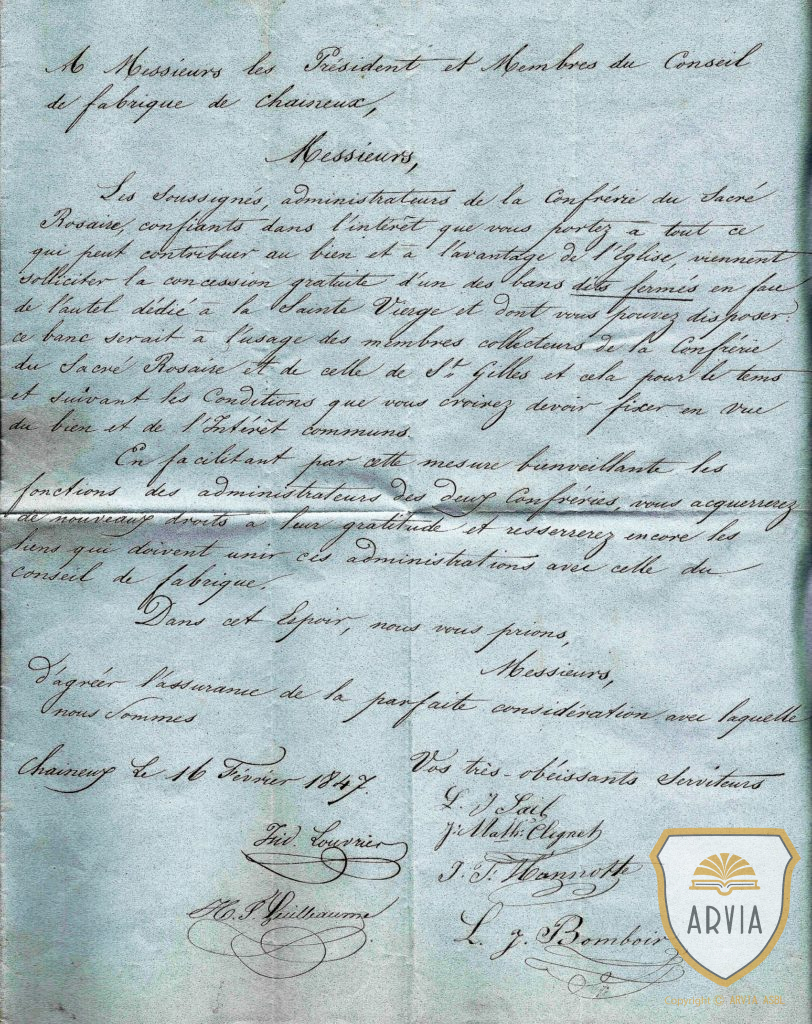 A Messieurs les Président et Membres du Conseil
de fabrique de Chaineux,
Messieurs,
Les Soussignés, administrateurs de la Confrérie du Sacré
Rosaire, confiants dans l'intérêt que vous portez à tout ce
qui peut contribuer au bien et à l'avantage de l'Eglise, viennent
solliciter la concession gratuite d'un des bans dits fermés en face
de l'autel dédié à la Sainte Vierge et dont vous pouvez disposer:
ce banc serait à l'usage des membres collecteurs de la Confrérie
du Sacré Rosaire et de celle de St. Gilles et cela pour le tems
et suivant les Conditions que vous croirez devoir fixer en vue
du bien et de l'Intérêt communs.
En facilitant par cette mesure bienveillante les
fonctions des administrateurs des deux Confréries, vous acquerrerez
de nouveaux droits à leur gratitude et resserrerez encore les
liens qui doivent unir ces administrations avec celle du
Conseil de fabrique.
Dans cet Espoir, nous vous prions,
Messieurs,
d'agréer l'assurance de la parfaite considération avec laquelle
nous Sommes
Vos très-obéissants Serviteurs
Chaineux le 16 Février 1847.
L. J. Sail
J: Math: Clignet
Fid. Louvrier
J. F. Hannotte
H. J. Guilleaume
L. J. Bomboir
ARVIA
Copyright © ARVIA ASBL